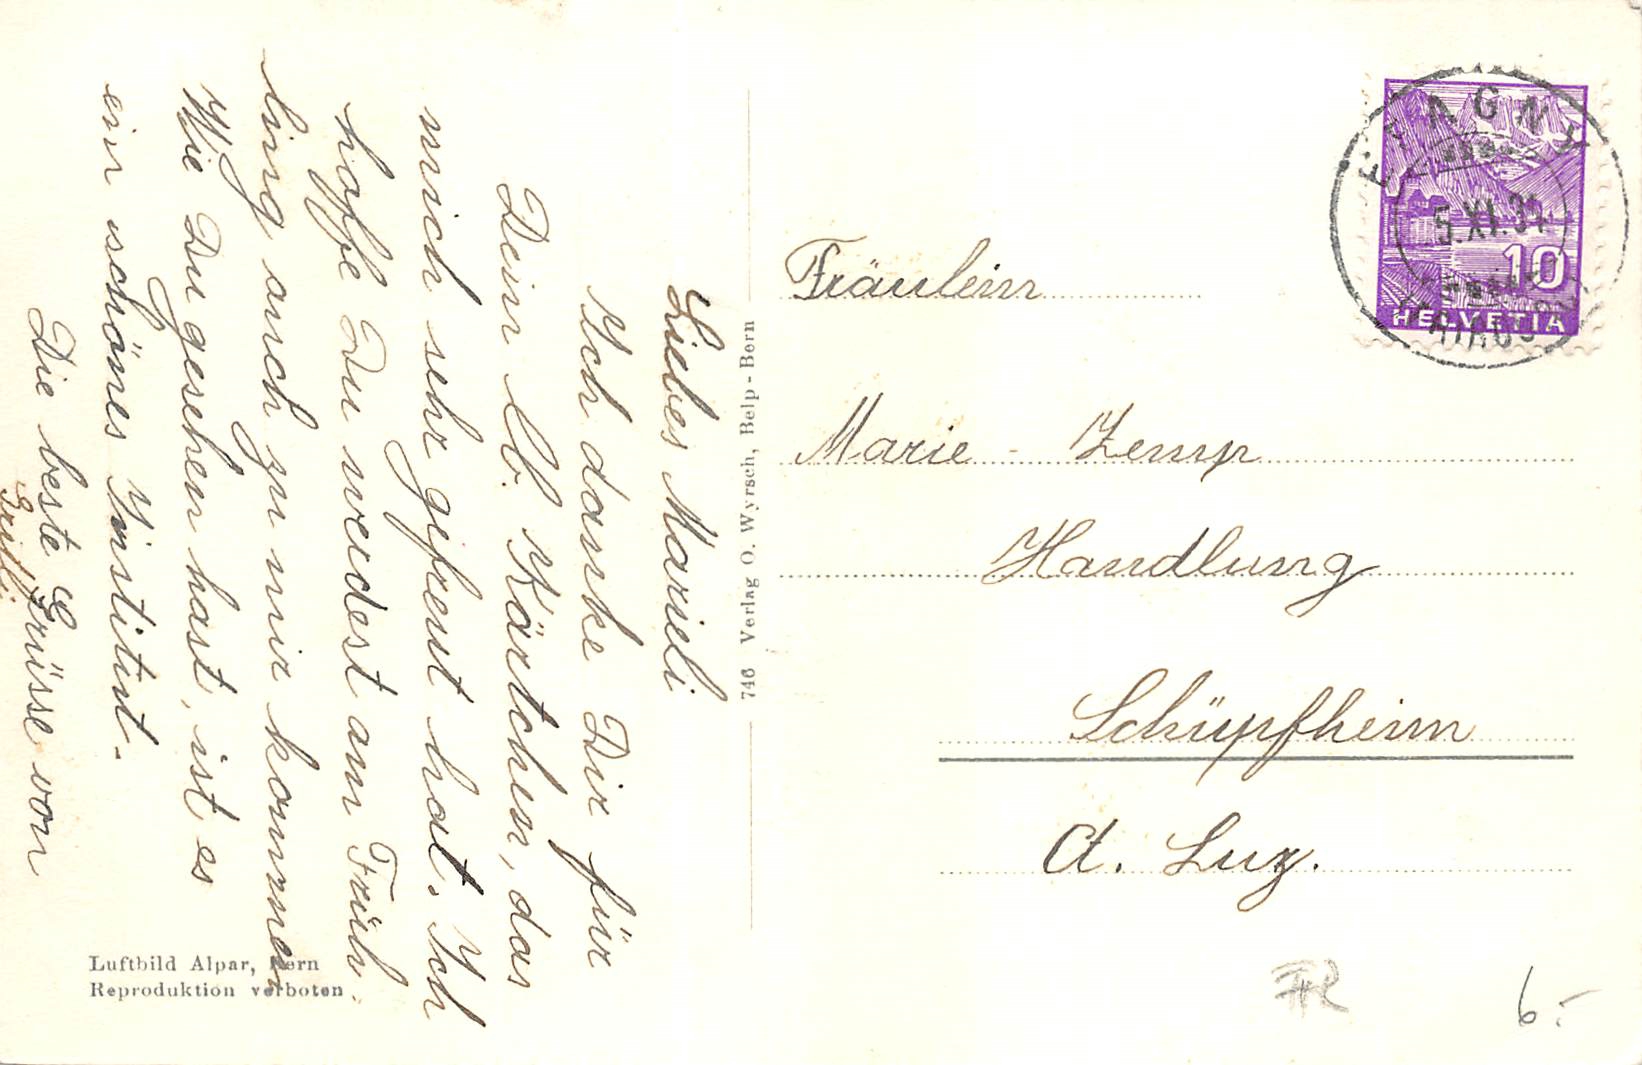 Liebes Marieli
Ich danke Dir für
Dein lb. Kärtchen, das
mich sehr gefreut hat. Ich
hoffe Du werdest am Früh-
ling auch zu mir kommen.
Wie Du gesehen hast, ist es
ein schönes Institut.
Die beste Grüsse von
Luftbild Alpar, Bern
Reproduktion verboten
746 Verlag O. Wyrsch, Belp-Bern
Fräulein
Marie - Zemp
Handlung
Schüpfheim
Ct. Luz.
5.XI.
10
HELVETIA
6.-